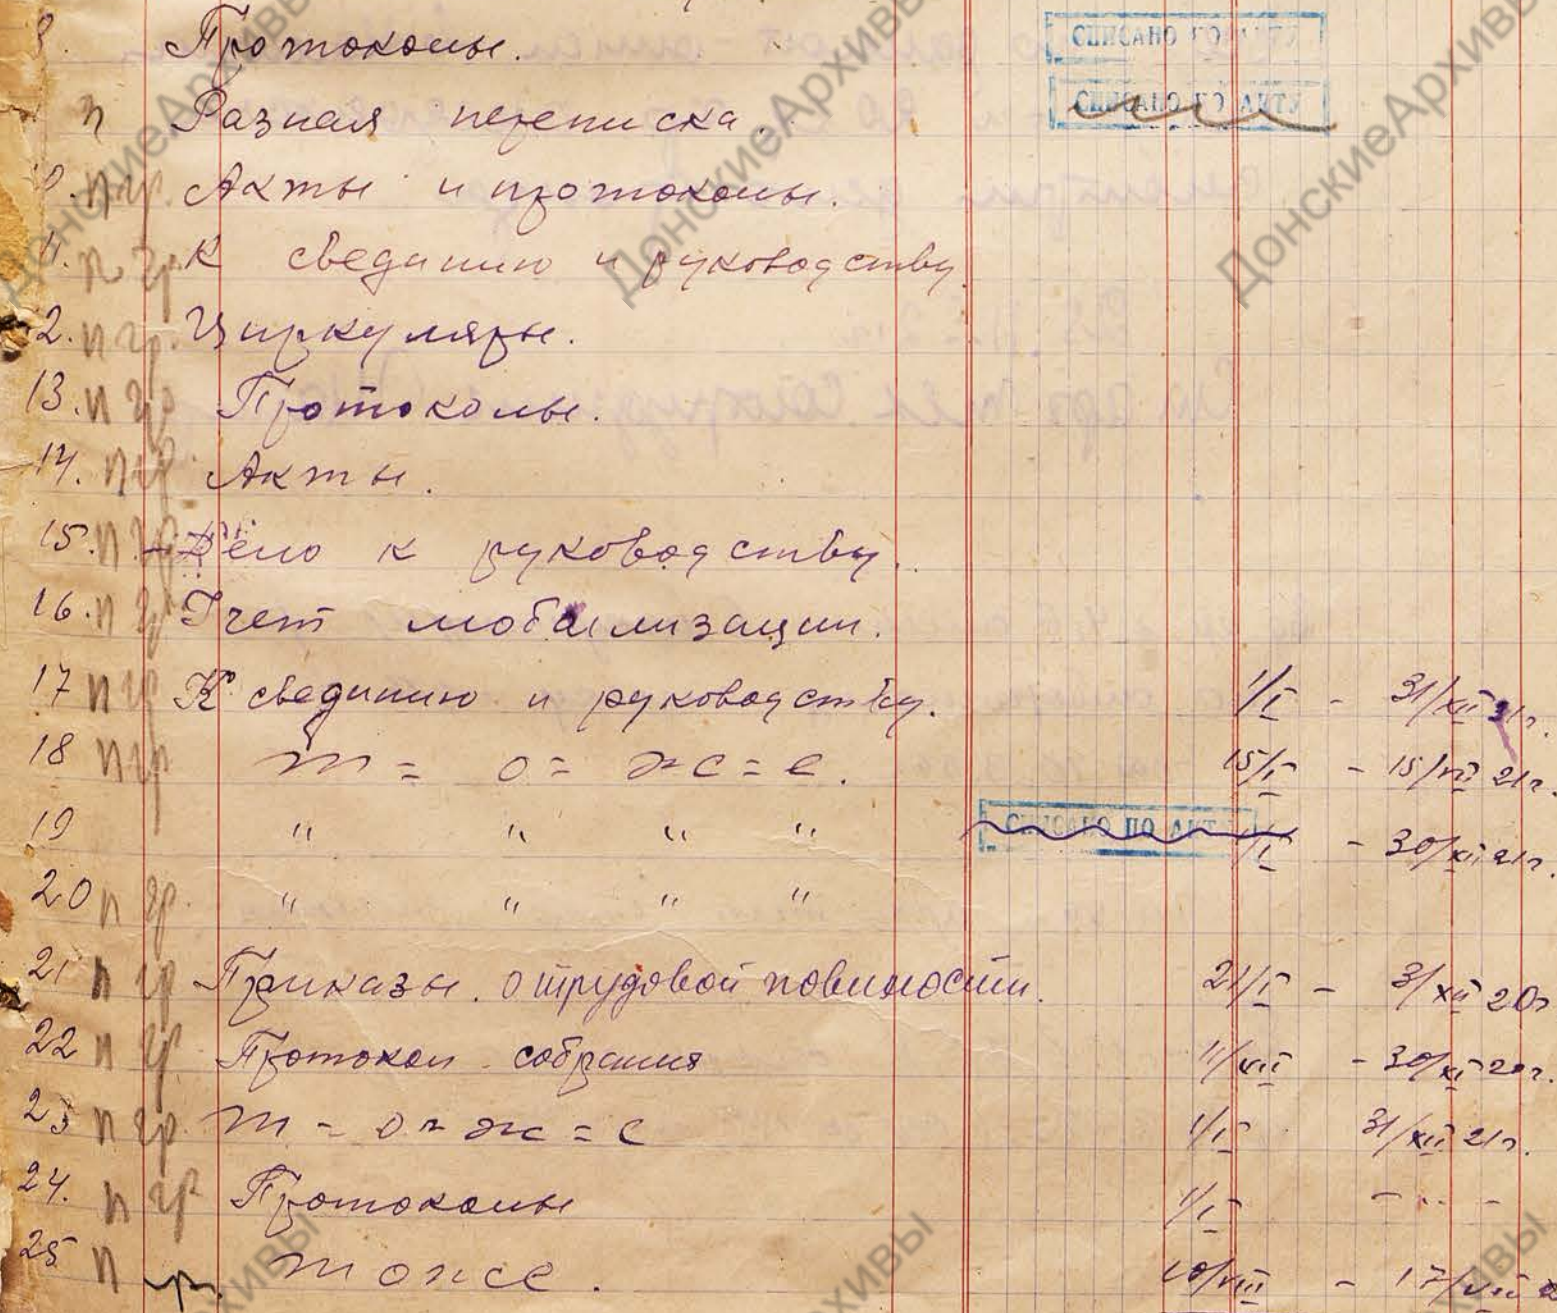 8. Протоколы. СПИСАНО ПО АКТУ
п Разная переписка. СПИСАНО ПО АКТУ
п гр. Акты и протоколы.
11. п гр. К свединию и руководству.
2. п гр. Циркуляры.
13. п гр Протоколы.
14. п гр Акты.
15. п гр - Дело к руководству.
16. п гр Учет мобилизации.
17 п гр К свединию и руководству. 1/I - 31/XII 21г.
18 п гр т = о = ж = е. 15/I - 15/VII 21г.
19 " " " " СПИСАНО ПО АКТУ 1/I - 30/XII 21г.
20 п гр. " " " "
21 п гр Приказы о трудовой повиности. 21/I - 31/XII 20г
22 п гр Протокол собрания 11/VII - 30/XI 20г.
23 п гр. т - о = ж = е 1/I 31/XII 21г.
24. п гр Протоколы 1/I - " -
25 п гр. тоже. 10/VIII - 17/VII
ДонскиеАрхивы
ДонскиеАрхивы
ДонскиеАрхивы